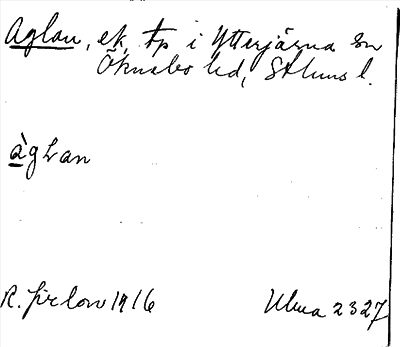 Aglan, ek, tp i Ytterjärna sn
Öknebo hd, Sthlms l.
àgLan
R. Jirlow 1916
Ulma 2327